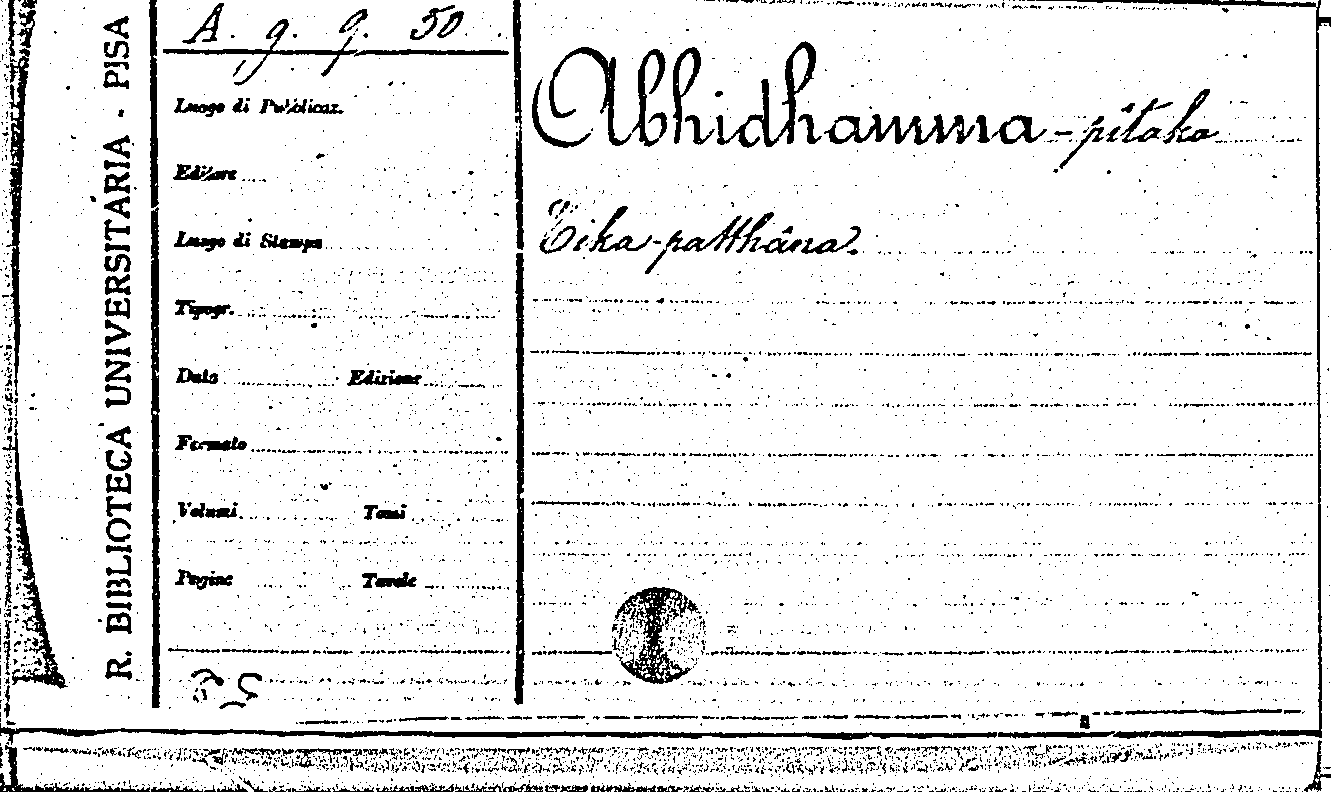 R. BIBLIOTECA UNIVERSITARIA - PISA
A. g. 9. 50.
Luogo di Pubblicaz.
Editore
Luogo di Stampa
Tipogr.
Data Edizione
Formato
Volumi Tomi
Pagine Tavole
Abhidhamma-pitaka
Tika-patthâna.